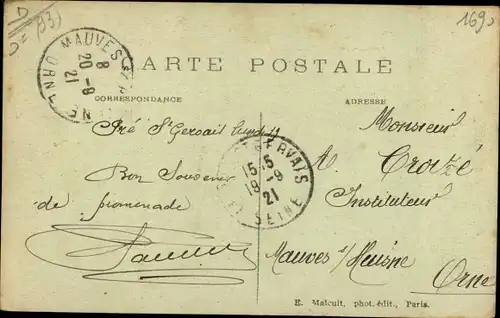 D
D = (93)
169
MAUVES-S-H
8
20 - 9
21
ORNE
CARTE POSTALE
CORRESPONDANCE
ADRESSE
Pré St Gervais Lundi
Bon Souvenir
de promenade
GERVAIS
15 15
19 - 9
21
SEINE
Monsieur
A. Croizé
Instituteur
Mauves s/ Huisne
Orne
E. Malcuit, phot.-édit., Paris.